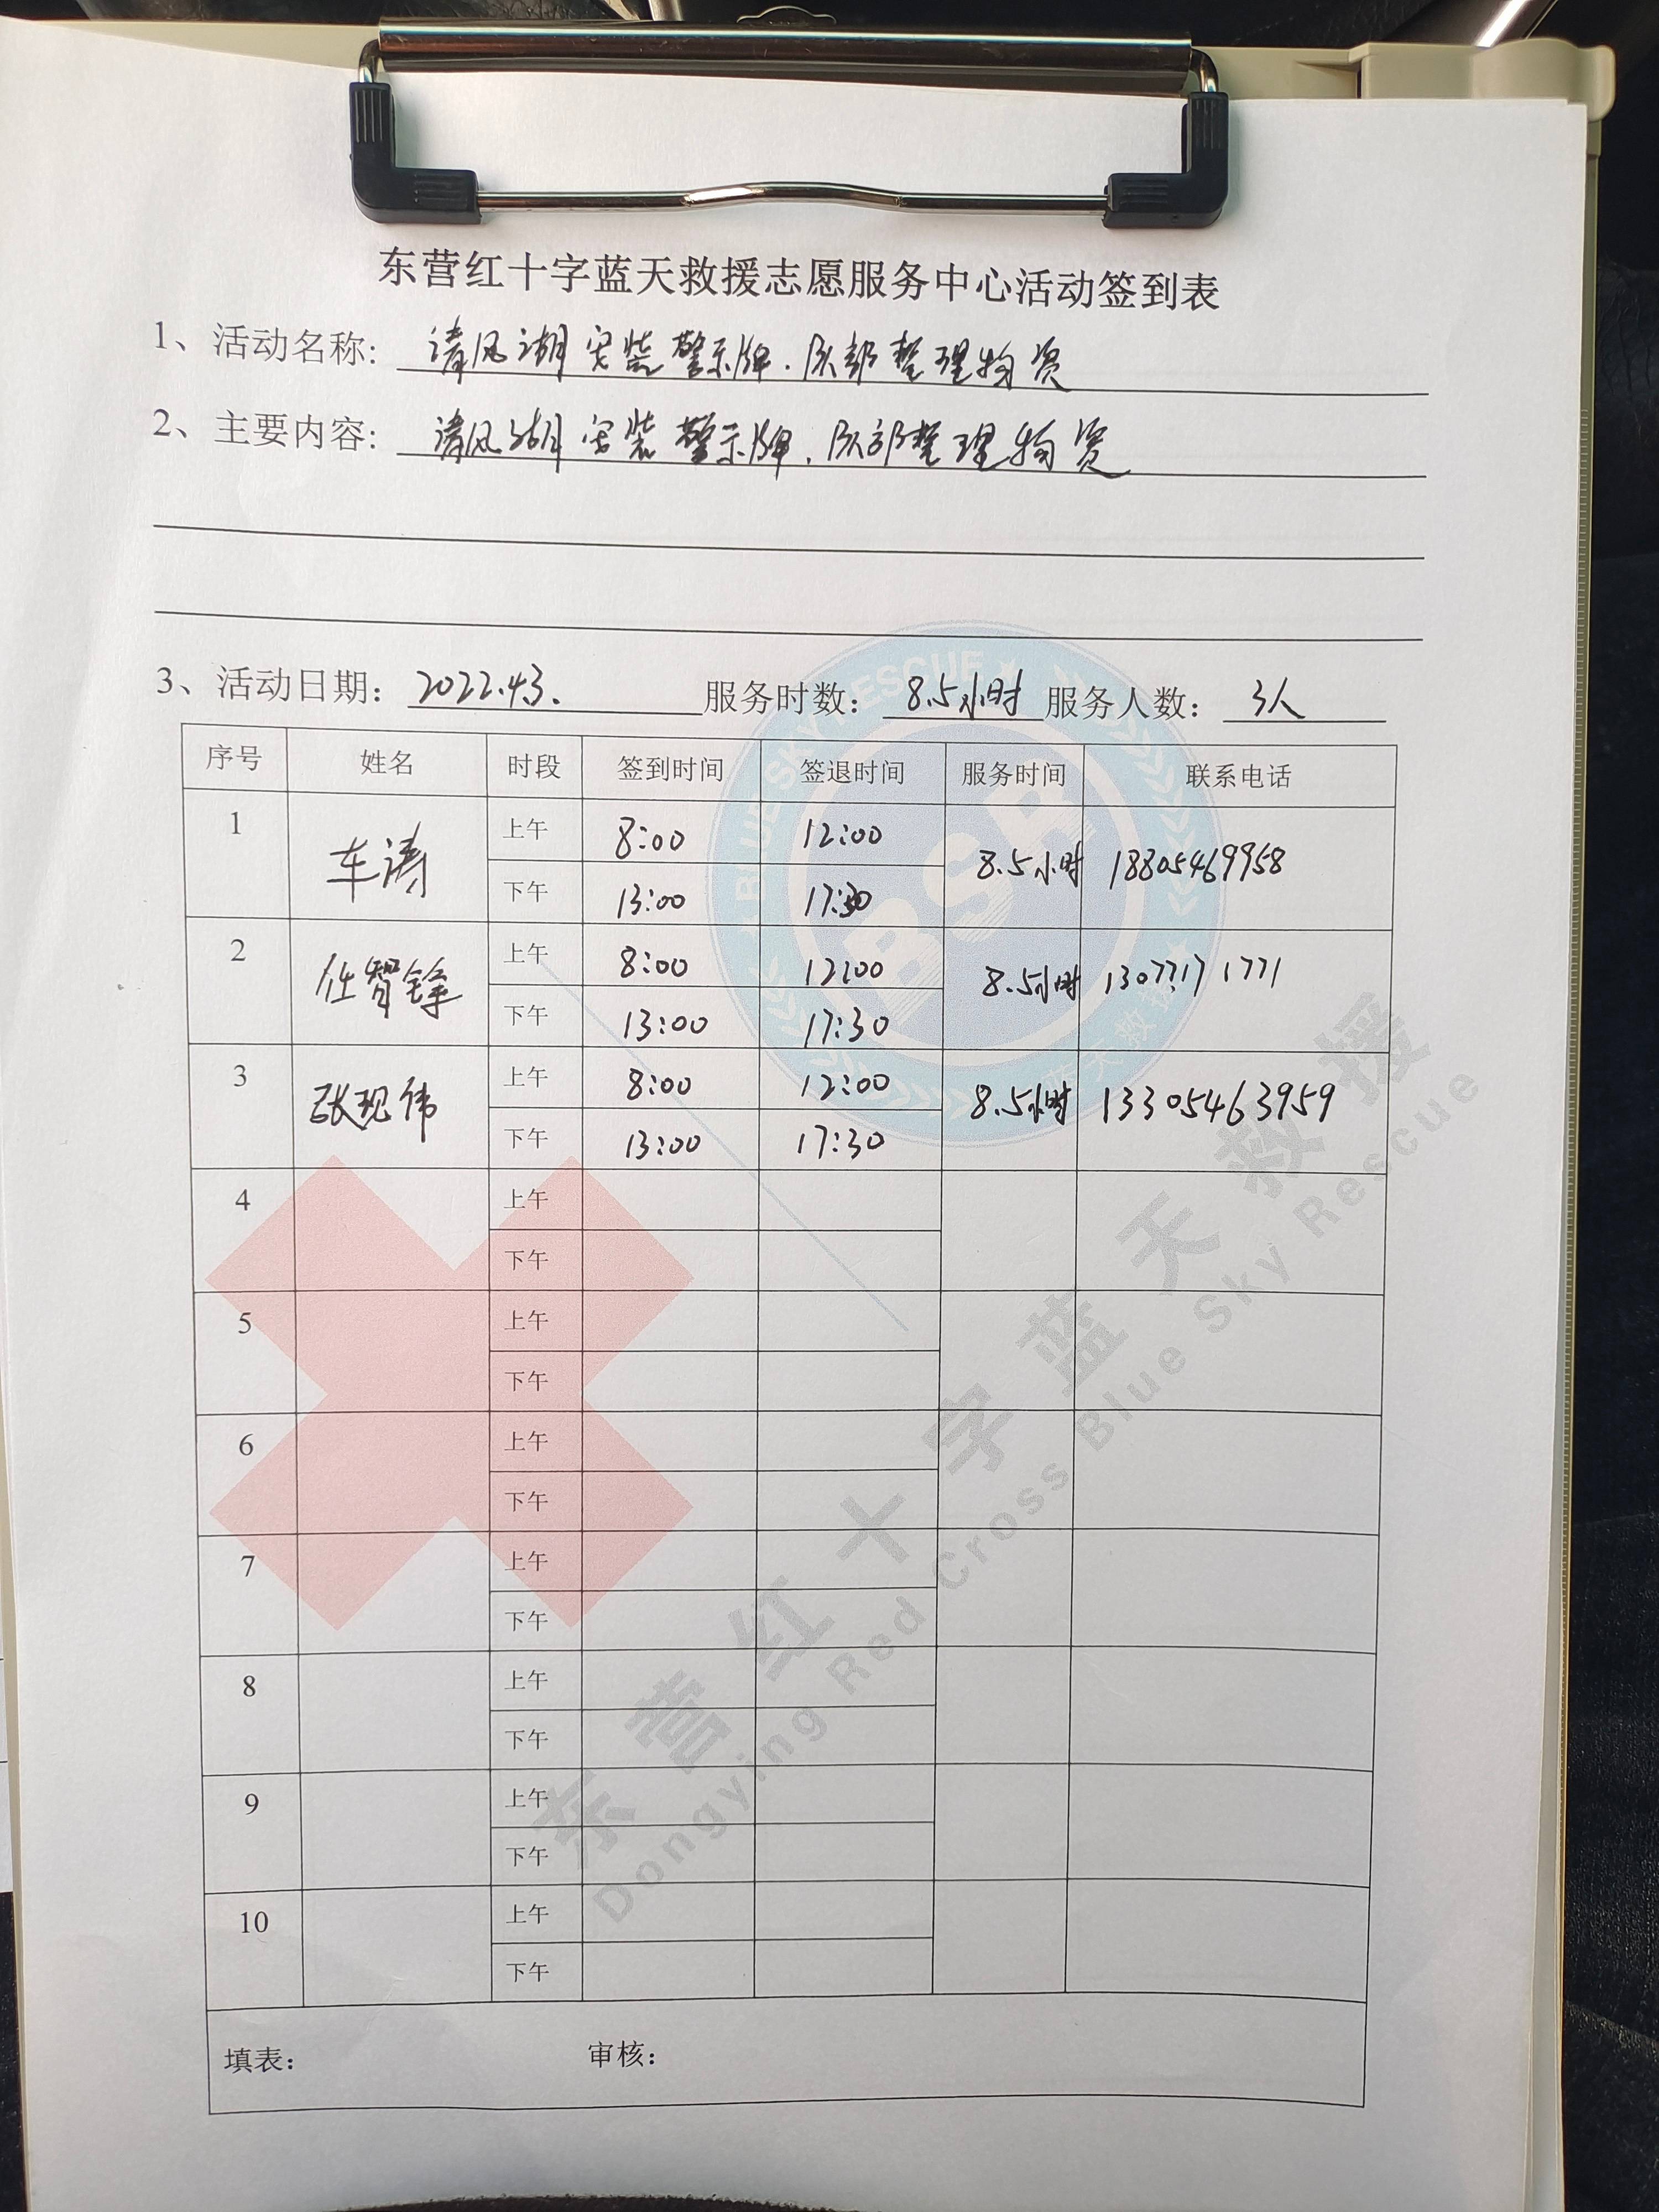 东营红十字蓝天救援志愿服务中心活动签到表
1、活动名称: 清风湖安装警示牌.队部整理物资
2、主要内容: 清风湖安装警示牌.队部整理物资
3、活动日期: 2022.4.3. 服务时数: 8.5小时 服务人数: 3人
序号 姓名 时段 签到时间 签退时间 服务时间 联系电话
1 车涛 上午 8:00 12:00 8.5小时 18805469958
下午 13:00 17:30
2 任智锋 上午 8:00 12:00 8.5小时 13077171771
下午 13:00 17:30
3 张现伟 上午 8:00 12:00 8.5小时 13305463959
下午 13:00 17:30
4 上午
下午
5 上午
下午
6 上午
下午
7 上午
下午
8 上午
下午
9 上午
下午
10 上午
下午
填表: 审核:
BLUE SKY RESCUE
BSR
东营红十字蓝天救援
Dongying Red Cross Blue Sky Rescue